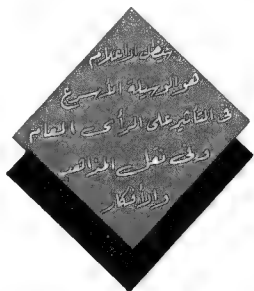 يظل الاعلام
هو الوسيلة الأسرع
في التأثير على الرأى العام
وفى نقل المذاهب
والأفكار